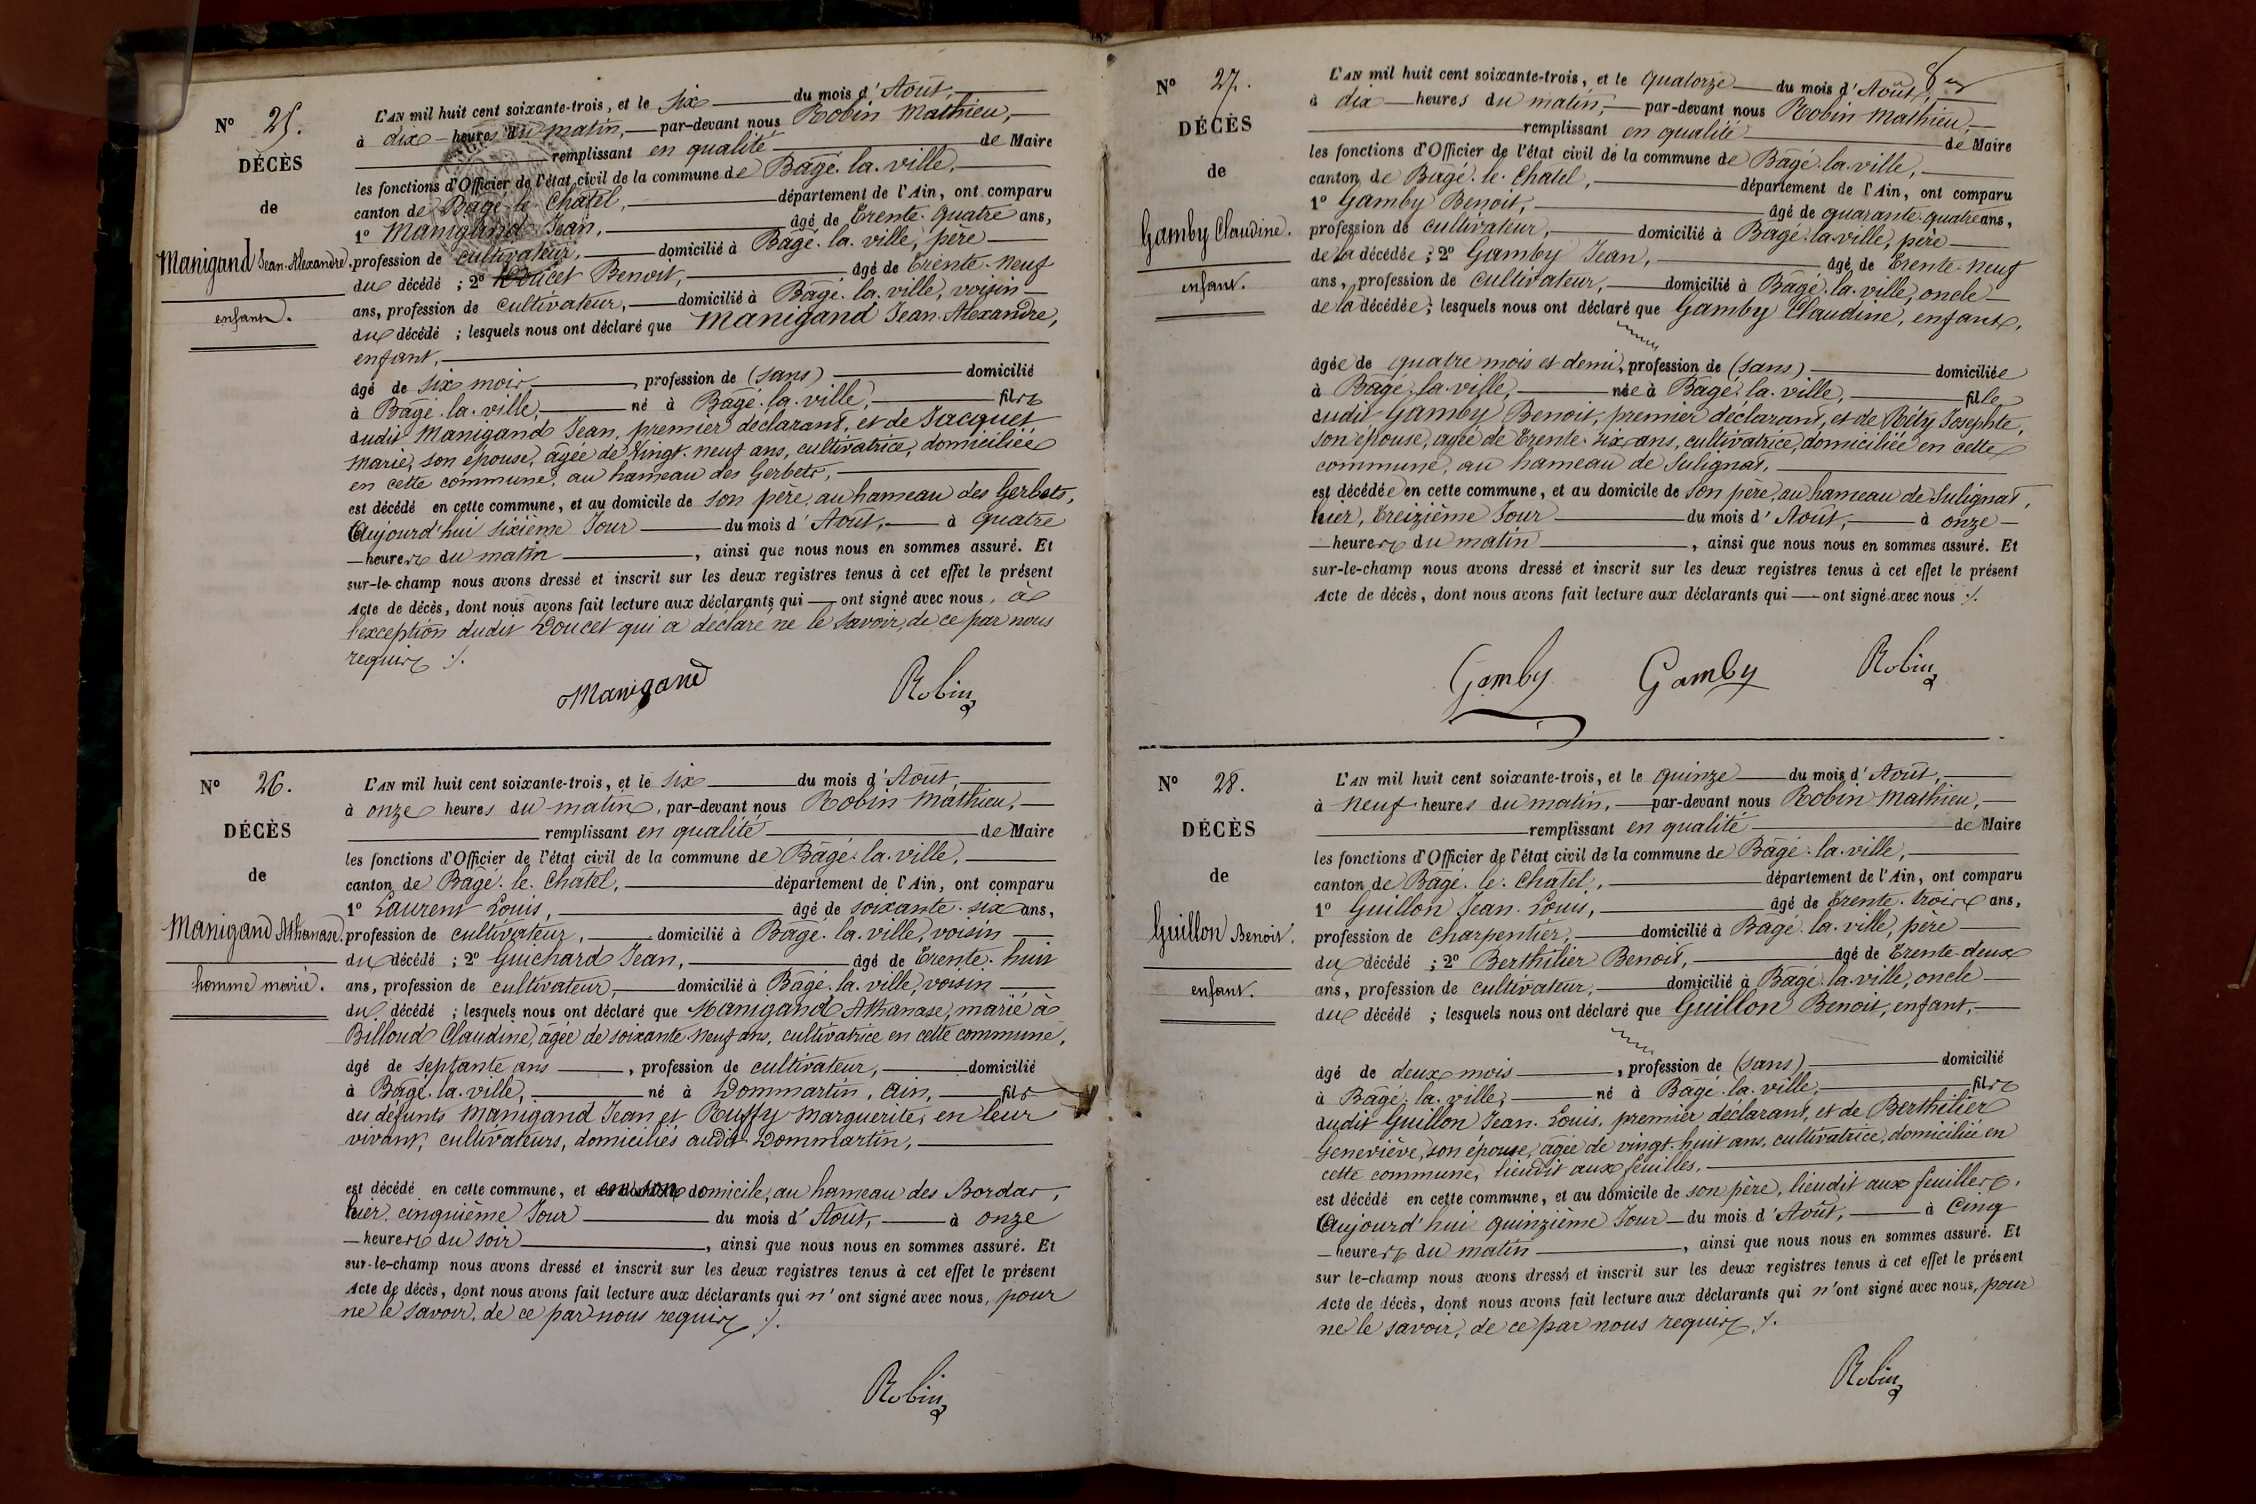 N° 25.
DÉCÈS
de
Manigand Jean-Alexandre.
enfant.
L'AN mil huit cent soixante-trois, et le six du mois d'Août,
à dix heures du matin, par-devant nous Robin Mathieu,
remplissant en qualité de Maire
les fonctions d'Officier de l'état civil de la commune de Bâgé-la-ville,
canton de Bâgé-le-Chatel, département de l'Ain, ont comparu
1° Manigand Jean, âgé de trente-quatre ans,
profession de cultivateur, domicilié à Bâgé-la-ville, père
du décédé ; 2° Doucet Benoit, âgé de trente-neuf
ans, profession de cultivateur, domicilié à Bâgé-la-ville, voisin
du décédé ; lesquels nous ont déclaré que Manigand Jean-Alexandre,
enfant,
âgé de six mois, profession de (sans) domicilié
à Bâgé-la-ville, né à Bâgé-la-ville, fils
dudit Manigand Jean, premier déclarant, et de Jacquet
Marie, son épouse, âgée de vingt-neuf ans, cultivatrice, domiciliée
en cette commune, au hameau des Gerbets,
est décédé en cette commune, et au domicile de son père, au hameau des Gerbets,
Aujourd'hui sixième Jour du mois d'Août, à quatre
heures du matin, ainsi que nous nous en sommes assuré. Et
sur-le-champ nous avons dressé et inscrit sur les deux registres tenus à cet effet le présent
Acte de décès, dont nous avons fait lecture aux déclarants qui ont signé avec nous, à
l'exception dudit Doucet qui a déclaré ne le savoir, de ce par nous
requis ./.
Manigand Robin
N° 26.
DÉCÈS
de
Manigand Athanase.
homme marié.
L'AN mil huit cent soixante-trois, et le six du mois d'Août,
à onze heures du matin, par-devant nous Robin Mathieu,
remplissant en qualité de Maire
les fonctions d'Officier de l'état civil de la commune de Bâgé-la-ville,
canton de Bâgé-le-Chatel, département de l'Ain, ont comparu
1° Laurent Louis, âgé de soixante-six ans,
profession de cultivateur, domicilié à Bâgé-la-ville, voisin
du décédé ; 2° Guichard Jean, âgé de trente-huit
ans, profession de cultivateur, domicilié à Bâgé-la-ville, voisin
du décédé ; lesquels nous ont déclaré que Manigand Athanase, marié à
Billoud Claudine, âgée de soixante-neuf ans, cultivatrice en cette commune,
âgé de septante ans, profession de cultivateur, domicilié
à Bâgé-la-ville, né à Dommartin, Ain, fils
des défunts Manigand Jean et Ruffy Marguerite, en leur
vivant, cultivateurs, domiciliés audit Dommartin,
est décédé en cette commune, et en son domicile, au hameau des Bordas,
hier, cinquième Jour du mois d'Août, à onze
heures du soir, ainsi que nous nous en sommes assuré. Et
sur-le-champ nous avons dressé et inscrit sur les deux registres tenus à cet effet le présent
Acte de décès, dont nous avons fait lecture aux déclarants qui n'ont signé avec nous, pour
ne le savoir, de ce par nous requis ./.
Robin
8
N° 27.
DÉCÈS
de
Gamby Claudine.
enfant.
L'AN mil huit cent soixante-trois, et le quatorze du mois d'Août,
à dix heures du matin, par-devant nous Robin Mathieu,
remplissant en qualité de Maire
les fonctions d'Officier de l'état civil de la commune de Bâgé-la-ville,
canton de Bâgé-le-Chatel, département de l'Ain, ont comparu
1° Gamby Benoit, âgé de quarante-quatre ans,
profession de cultivateur, domicilié à Bâgé-la-ville, père
de la décédée ; 2° Gamby Jean, âgé de trente-neuf
ans, profession de cultivateur, domicilié à Bâgé-la-ville, oncle
de la décédée ; lesquels nous ont déclaré que Gamby Claudine, enfant,
âgée de quatre mois et demi, profession de (sans) domiciliée
à Bâgé-la-ville, née à Bâgé-la-ville, fille
dudit Gamby Benoit, premier déclarant, et de Réty Josephte,
son épouse, âgée de trente-six ans, cultivatrice, domiciliée en cette
commune, au hameau de Sulignat,
est décédée en cette commune, et au domicile de son père, au hameau de Sulignat,
hier, treizième Jour du mois d'Août, à onze
heures du matin, ainsi que nous nous en sommes assuré. Et
sur-le-champ nous avons dressé et inscrit sur les deux registres tenus à cet effet le présent
Acte de décès, dont nous avons fait lecture aux déclarants qui ont signé avec nous ./.
Gamby Gamby Robin
N° 28.
DÉCÈS
de
Guillon Benoit.
enfant.
L'AN mil huit cent soixante-trois, et le quinze du mois d'Août,
à neuf heures du matin, par-devant nous Robin Mathieu,
remplissant en qualité de Maire
les fonctions d'Officier de l'état civil de la commune de Bâgé-la-ville,
canton de Bâgé-le-Chatel, département de l'Ain, ont comparu
1° Guillon Jean-Louis, âgé de trente-trois ans,
profession de charpentier, domicilié à Bâgé-la-ville, père
du décédé ; 2° Berthilier Benoit, âgé de trente-deux
ans, profession de cultivateur, domicilié à Bâgé-la-ville, oncle
du décédé ; lesquels nous ont déclaré que Guillon Benoit, enfant,
âgé de deux mois, profession de (sans) domicilié
à Bâgé-la-ville, né à Bâgé-la-ville, fils
dudit Guillon Jean-Louis, premier déclarant, et de Berthilier
Geneviève, son épouse, âgée de vingt-huit ans, cultivatrice, domiciliée en
cette commune, lieudit aux feuilles,
est décédé en cette commune, et au domicile de son père, lieudit aux feuilles,
Aujourd'hui quinzième Jour du mois d'Août, à cinq
heures du matin, ainsi que nous nous en sommes assuré. Et
sur le-champ nous avons dressé et inscrit sur les deux registres tenus à cet effet le présent
Acte de décès, dont nous avons fait lecture aux déclarants qui n'ont signé avec nous, pour
ne le savoir, de ce par nous requis ./.
Robin